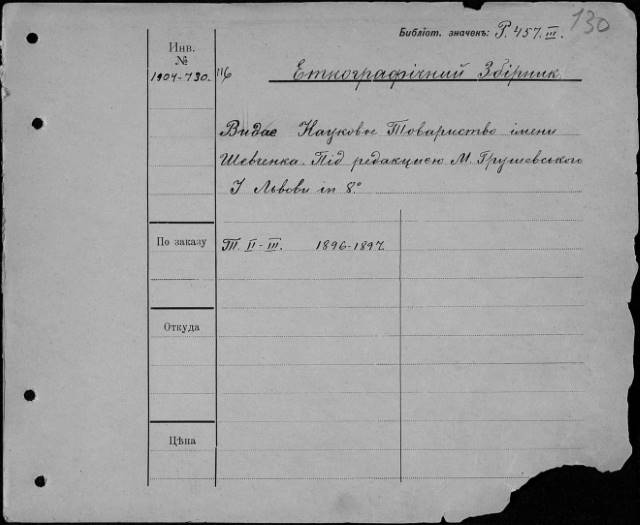 130
Библіот. значекъ: Р. 457. III.
Инв.
№
1904-730. 116
Етнографічний Збірник
Видає Наукове Товариство імени
Шевченка. Під редакциєю М. Грушевського
У Львови in 8.º
По заказу
Т. II-III. 1896-1897.
Откуда
Цѣна